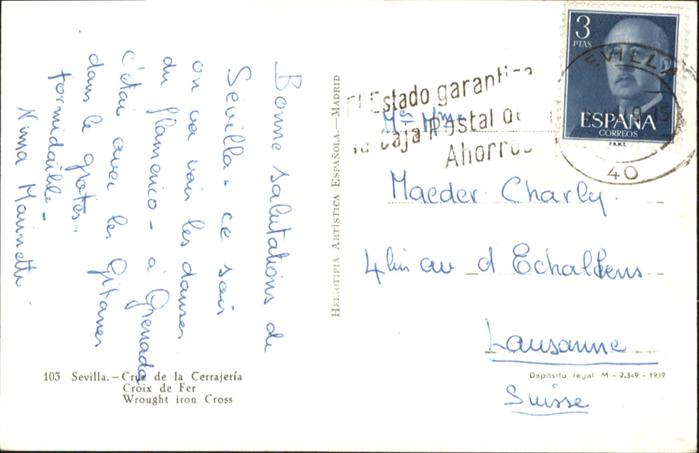 Bonne salutations de
Sevilla - ce soir
on va voir les danses
du flamenco - à Grenada
c'étai avec les Gitanes
dans le grotes.
formidable -
Nina
HELIOTIPIA ARTÍSTICA ESPAÑOLA.—MADRID
3
PTAS
ESPAÑA
CORREOS
F.N.M.T.
SEVILLA
40
El Estado garantiza
la Caja Postal de
Ahorros
Mr et Mme
Maeder Charly
av d Echallens
Lausanne
Suisse
Depósito legal M - 2.349 - 1959
103 Sevilla.—Cruz de la Cerrajería
Croix de Fer
Wrought iron Cross